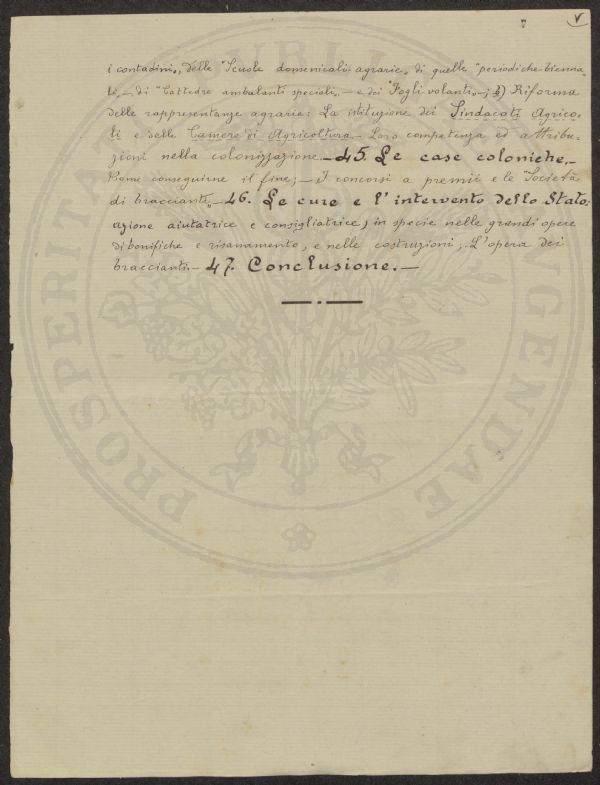 7 V
i contadini„, delle "Scuole domenicali-agrarie„ di quelle "periodiche-bienna-
li„ – di "Cattedre ambulanti speciali„ – e dei "Fogli volanti„ –; 3) Riforma
delle rappresentanze agrarie: La istituzione dei Sindacati Agrico-
li e delle Camere di Agricoltura – Loro competenza ed attribu-
zioni nella colonizzazione. – 45. Le case coloniche. –
Come conseguirne il fine; – I concorsi a premii e le "Società
di braccianti„ – 46. Le cure e l'intervento dello Stato:
azione aiutatrice e consigliatrice, in specie nelle grandi opere
di bonifiche e risanamento, e nelle costruzioni; L'opera dei
braccianti. – 47. Conclusione. –
PROSPERITAT PUBLI AUGENDAE